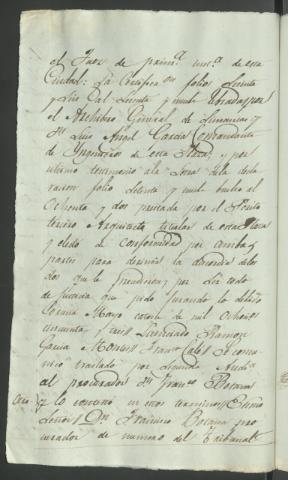 el Juez de primª. instª. de esta
Ciudad: La Certificaⁿ folios setenta
y seis al setenta y nueve librada por
el Archibo General de Simancas y
Dⁿ. Luis Angel Garcia Comandante
de Yngenieros de esta Plaza, y por
ultimo testimonio a la letra de la decla
racion folio setenta y nueve buelto al
Ochenta y dos prestada por el
tercero Arquitecto titular de esta Plaza
y electo de conformidad por ambas
partes para dirimir la discordia de los
dos que le precedieron; por ser todo
de justicia que pido jurando lo debido
Coruña Mayo catorce de mil ochocientos
cincuenta y seis Licenciado Ramon
Garcia Montes Franᶜᵒ se comu
nico traslado por Segundo
al procurador Dⁿ. Franᶜᵒ Botana
y lo contestó en estos terminos Exmo
Señor Dⁿ. Francisco Botana pro
curador de numero del Tribunal